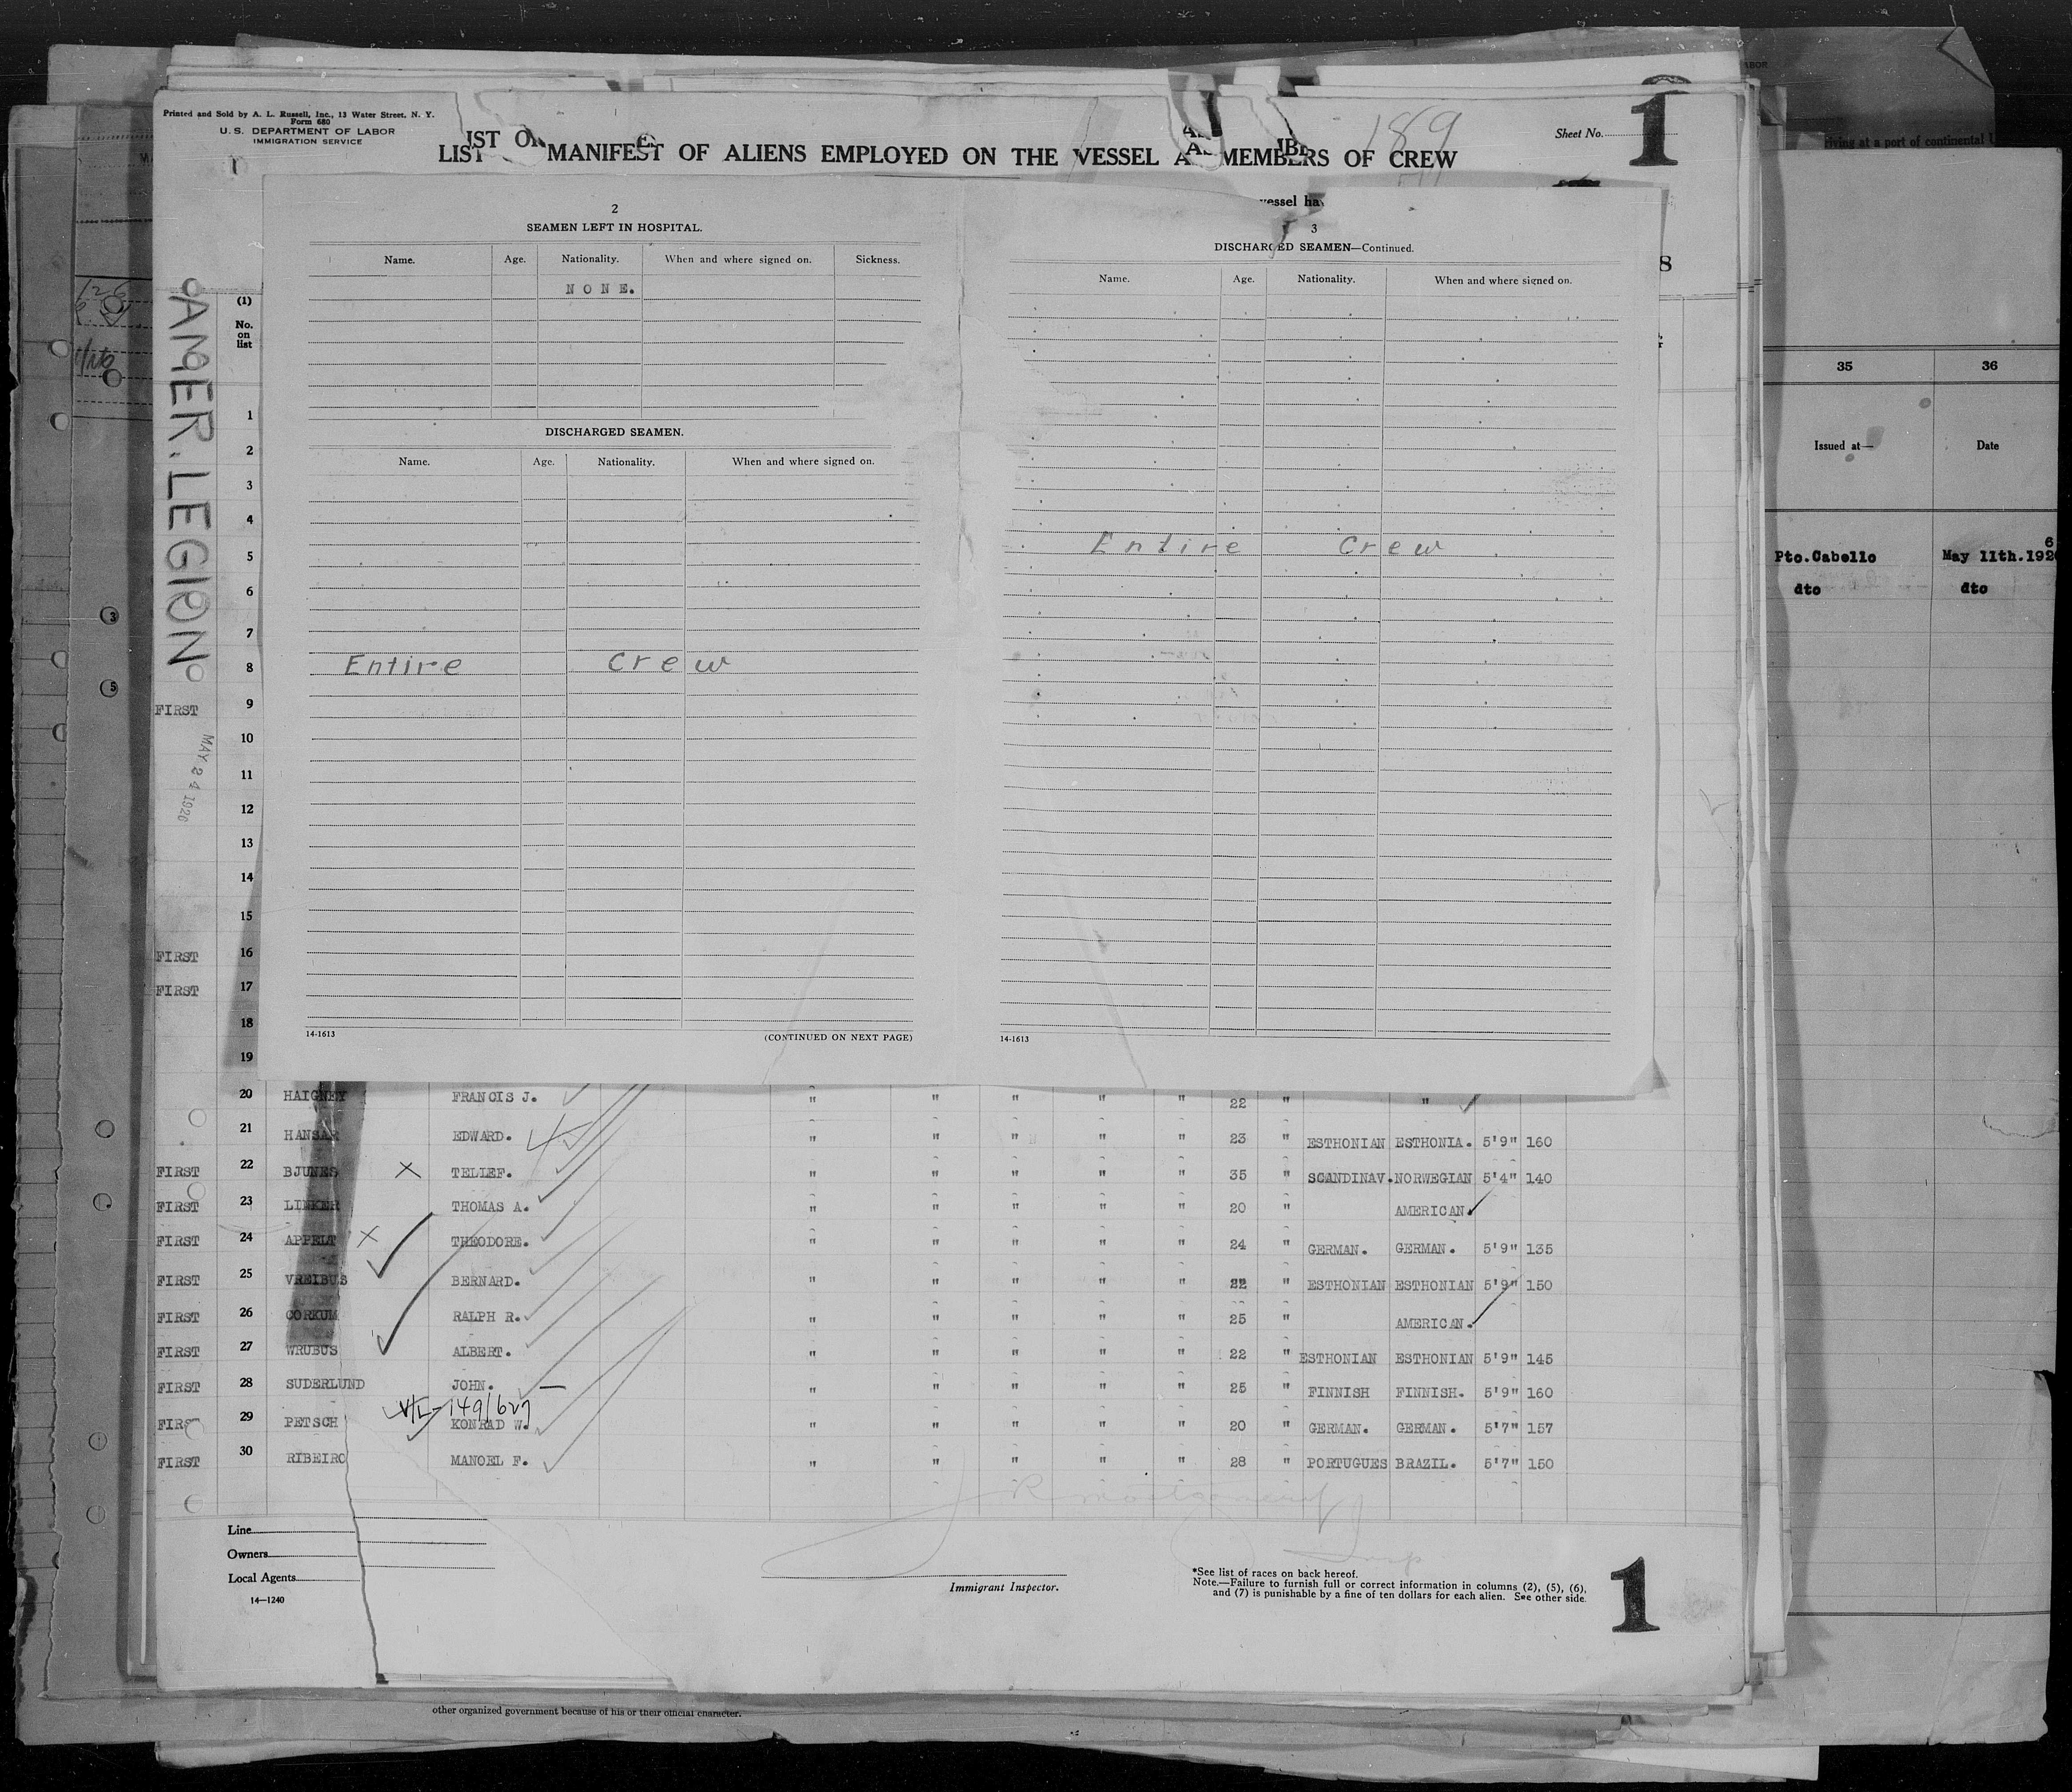 Printed and Sold by A. L. Russell, Inc., 13 Water Street, N. Y.
Form 680
U. S. DEPARTMENT OF LABOR
IMMIGRATION SERVICE
189
Sheet No.
1
LIST MANIFEST OF ALIENS EMPLOYED ON THE VESSEL AS MEMBERS OF CREW
vessel hav
AMER. LEGION
MAY 24 1926
2
SEAMEN LEFT IN HOSPITAL.
Name. Age. Nationality. When and where signed on. Sickness.
NONE.
DISCHARGED SEAMEN.
Name. Age. Nationality. When and where signed on.
Entire Crew
14-1613 (CONTINUED ON NEXT PAGE)
3
DISCHARGED SEAMEN—Continued.
Name. Age. Nationality. When and where signed on.
Entire Crew
14-1613
8
(1)
No.
on
list
1
2
3
4
5
6
7
8
FIRST 9
10
11
12
13
14
15
FIRST 16
FIRST 17
18
19
20 HAIGNEY FRANCIS J. " " " " " 22 " "
21 HANSAR EDWARD. " " " " " 23 " ESTHONIAN ESTHONIA. 5'9" 160
FIRST 22 BJUNES X TELLEF. " " " " " 35 " SCANDINAV. NORWEGIAN 5'4" 140
FIRST 23 LINKER THOMAS A. " " " " " 20 " AMERICAN
FIRST 24 APPELT X THEODORE. " " " " " 24 " GERMAN. GERMAN. 5'9" 135
FIRST 25 VREIBUS BERNARD. " " " " " 22 " ESTHONIAN ESTHONIAN 5'9" 150
FIRST 26 CORKUM RALPH R. " " " " " 25 " AMERICAN.
FIRST 27 WRUBUS ALBERT. " " " " " 22 " ESTHONIAN ESTHONIAN 5'9" 145
FIRST 28 SUDERLUND JOHN. " " " " " 25 " FINNISH FINNISH. 5'9" 160
V/L-149/627
FIRS 29 PETSCH KONRAD W. " " " " " 20 " GERMAN. GERMAN. 5'7" 157
FIRST 30 RIBEIRO MANOEL F. " " " " " 28 " PORTUGUES BRAZIL. 5'7" 150
Line
Owners
Local Agents
14—1240
Immigrant Inspector.
*See list of races on back hereof.
Note.—Failure to furnish full or correct information in columns (2), (5), (6),
and (7) is punishable by a fine of ten dollars for each alien. See other side.
1
other organized government because of his or their official character.
iving at a port of continental
35 36
Issued at— Date
6
Pto.Cabello May 11th.192
dto dto
3
5